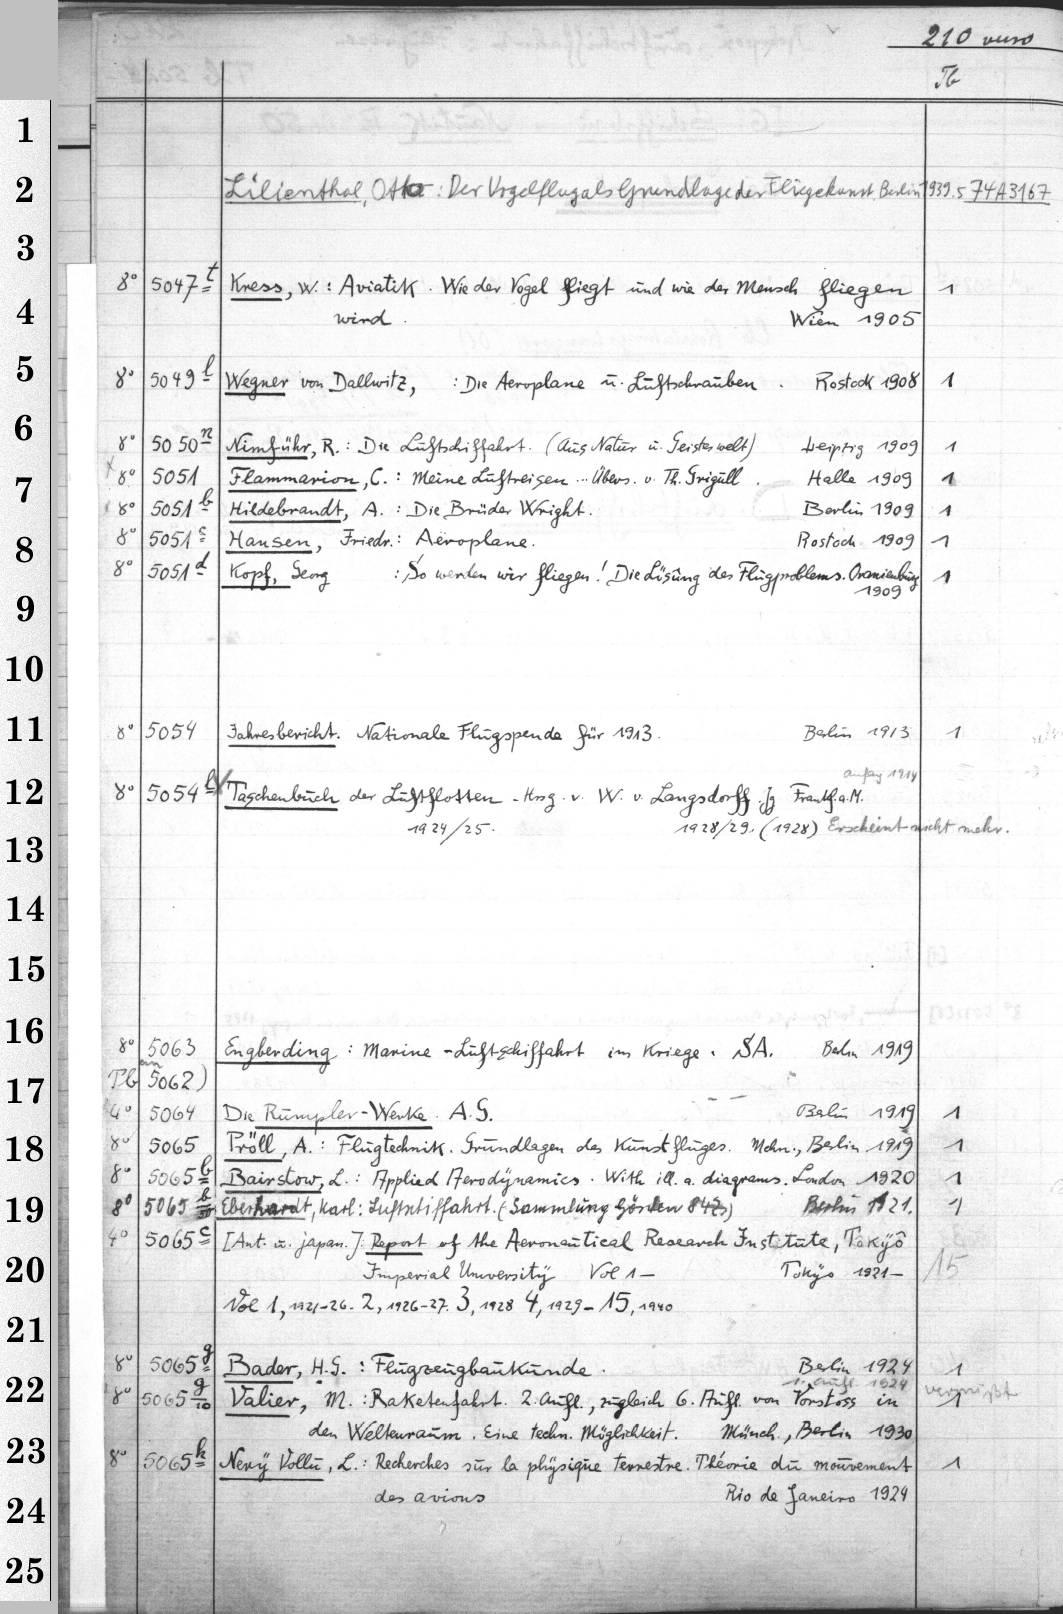 210 verso
Tb
1
2 Lilienthal, Otto: Der Vogelflug als Grundlage der Fliegekunst, Berlin 1939. 5 74A3167
3
8° 5047 t Kress, W.: Aviatik. Wie der Vogel fliegt und wie der Mensch fliegen 1
4 wird. Wien 1905
5 8° 5049 l Wegner von Dallwitz, : Die Aeroplane u. Luftschrauben. Rostock 1908 1
6 8° 5050 n Nimführ, R.: Die Luftschiffahrt. (Aus Natur u. Geisteswelt) Leipzig 1909 1
7 8° 5051 Flammarion, C.: Meine Luftreisen ... Übers. v. Th. Grigull. Halle 1909 1
8° 5051 b Hildebrandt, A.: Die Brüder Wright. Berlin 1909 1
8 8° 5051 c Hansen, Friedr.: Aëroplane. Rostock 1909 1
8° 5051 d Kopf, Georg : So werden wir fliegen! Die Lösung des Flugproblems. Oranienburg 1
9 1909
10
11 8° 5054 Jahresbericht. Nationale Flugspende für 1913. Berlin 1913 1
Anfang 1914
12 8° 5054 b Taschenbuch der Luftflotten. Hrsg. v. W. v. Langsdorff. Jg Frankf. a. M.
1924/25. 1928/29. (1928) Erscheint nicht mehr.
13
14
15
16
8° 5063 Engberding: Marine-Luftschiffahrt im Kriege. SA. Berlin 1919
(an
Tb 5062)
17 4° 5064 Die Rumpler-Werke. A.G. Berlin 1919 1
18 8° 5065 Pröll, A.: Flugtechnik. Grundlagen des Kunstfluges. Mchn., Berlin 1919 1
8° 5065 b Bairstow, L.: Applied Aerodynamics. With ill. a. diagrams. London 1920 1
19 8° 5065 b/50 Eberhardt, Karl: Luftschiffahrt. (Sammlung Göschen 842) Berlin 1921. 1
4° 5065 c [Ant. u. japan.]: Report of the Aeronautical Research Institute, Tokyô
20 Imperial University Vol 1– Tôkyo 1921– 15
Vol 1, 1921-26. 2, 1926-27. 3, 1928 4, 1929– 15, 1940
21
8° 5065 g Bader, H.G.: Flugzeugbaukunde. Berlin 1924 1
1. Aufl. 1924
22 8° 5065 g/10 Valier, M.: Raketenfahrt. 2. Aufl., zugleich 6. Aufl. von Vorstoss in 1 vermißt
den Weltenraum. Eine techn. Möglichkeit. Münch., Berlin 1930
23 8° 5065 k Nery Vollú, L.: Recherches sur la physique terrestre. Théorie du mouvement 1
24 des avions Rio de Janeiro 1924
25